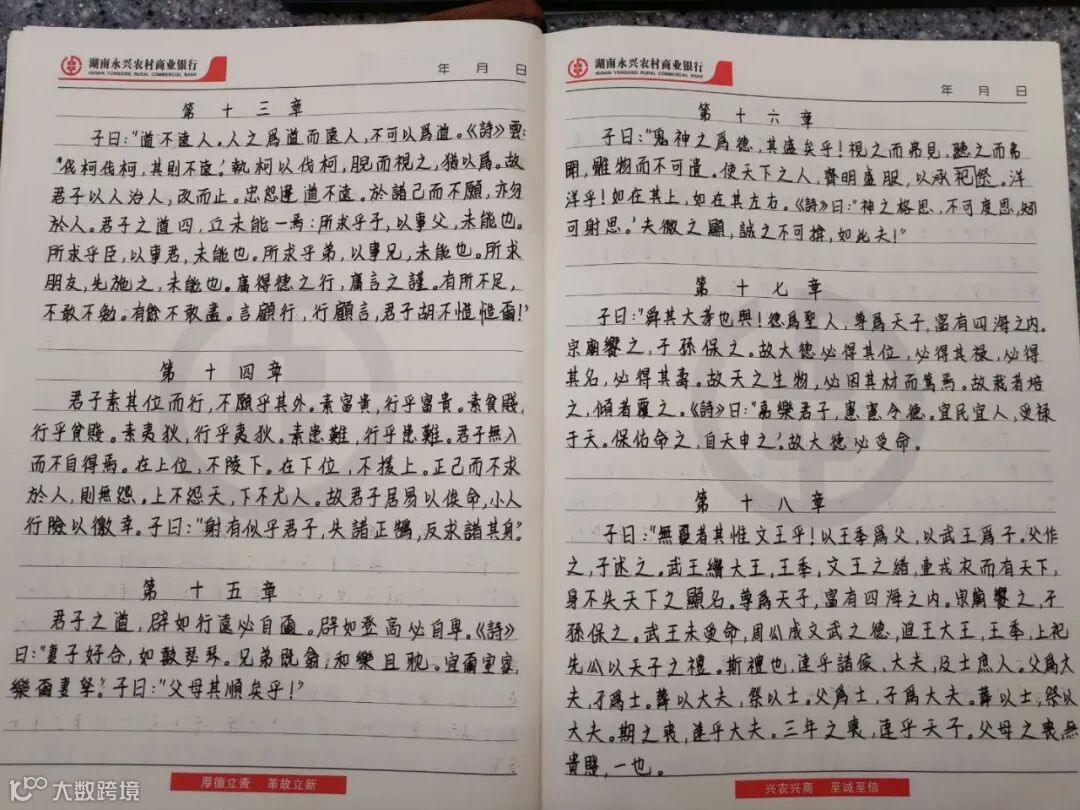 湖南永兴农村商业银行
HUNAN YONGXING RURAL COMMERCIAL BANK
年 月 日
第十三章
子曰:"道不遠人。人之爲道而遠人,不可以爲道。《詩》雲:
'伐柯伐柯,其則不遠。'執柯以伐柯,睨而視之,猶以爲。故
君子以人治人,改而止。忠恕違道不遠。於諸己而不願,亦勿
於人。君子之道四,丘未能一焉:所求乎子,以事父,未能也。
所求乎臣,以事君,未能也。所求乎弟,以事兄,未能也。所求
朋友,先施之,未能也。庸得德之行,庸言之謹。有所不足,
不敢不勉。有餘不敢盡。言顧行,行顧言,君子胡不慥慥爾!"
第十四章
君子素其位而行,不願乎其外。素富貴,行乎富貴。素貧賤,
行乎貧賤。素夷狄,行乎夷狄。素患難,行乎患難。君子無入
而不自得焉。在上位,不陵下。在下位,不援上。正己而不求
於人,則無怨。上不怨天,下不尤人。故君子居易以俟命,小人
行險以徼幸。子曰:"射有似乎君子,失諸正鵠,反求諸其身。"
第十五章
君子之道,辟如行遠必自邇。辟如登高必自卑。《詩》
曰:"妻子好合,如鼓瑟琴。兄弟既翕,和樂且耽。宜爾室家,
樂爾妻孥。"子曰:"父母其順矣乎!"
厚德立责 革故立新
湖南永兴农村商业银行
HUNAN YONGXING RURAL COMMERCIAL BANK
年 月 日
第十六章
子曰:"鬼神之爲德,其盛矣乎!視之而弗見,聽之而弗
聞,體物而不可遺。使天下之人,齊明盛服,以承祀祭。洋
洋乎!如在其上,如在其左右。《詩》曰:'神之格思,不可度思,矧
可射思。'夫微之顯,誠之不可揜,如此夫!"
第十七章
子曰:"舜其大孝也與!德爲聖人,尊爲天子,富有四海之内。
宗廟饗之,子孫保之。故大德必得其位,必得其禄,必得
其名,必得其壽。故天之生物,必因其材而篤焉。故栽者培
之,傾者覆之。《詩》曰:"嘉樂君子,憲憲令德。宜民宜人,受禄
于天。保佑命之,自天申之。'故大德必受命。
第十八章
子曰:"無憂者其惟文王乎!以王季爲父,以武王爲子。父作
之,子述之。武王纘大王,王季,文王之緒,壹戎衣而有天下,
身不失天下之顯名。尊爲天子,富有四海之内。宗廟饗之,子
孫保之。武王末受命,周公成文武之德,追王大王,王季,上祀
先公以天子之禮。斯禮也,達乎諸侯、大夫,及士庶人。父爲大
夫,子爲士。葬以大夫,祭以士。父爲士,子爲大夫。葬以士,祭以
大夫。期之喪,達乎大夫。三年之喪,達乎天子。父母之喪,無
貴賤,一也。
兴农兴商 至诚至信
大数跨境